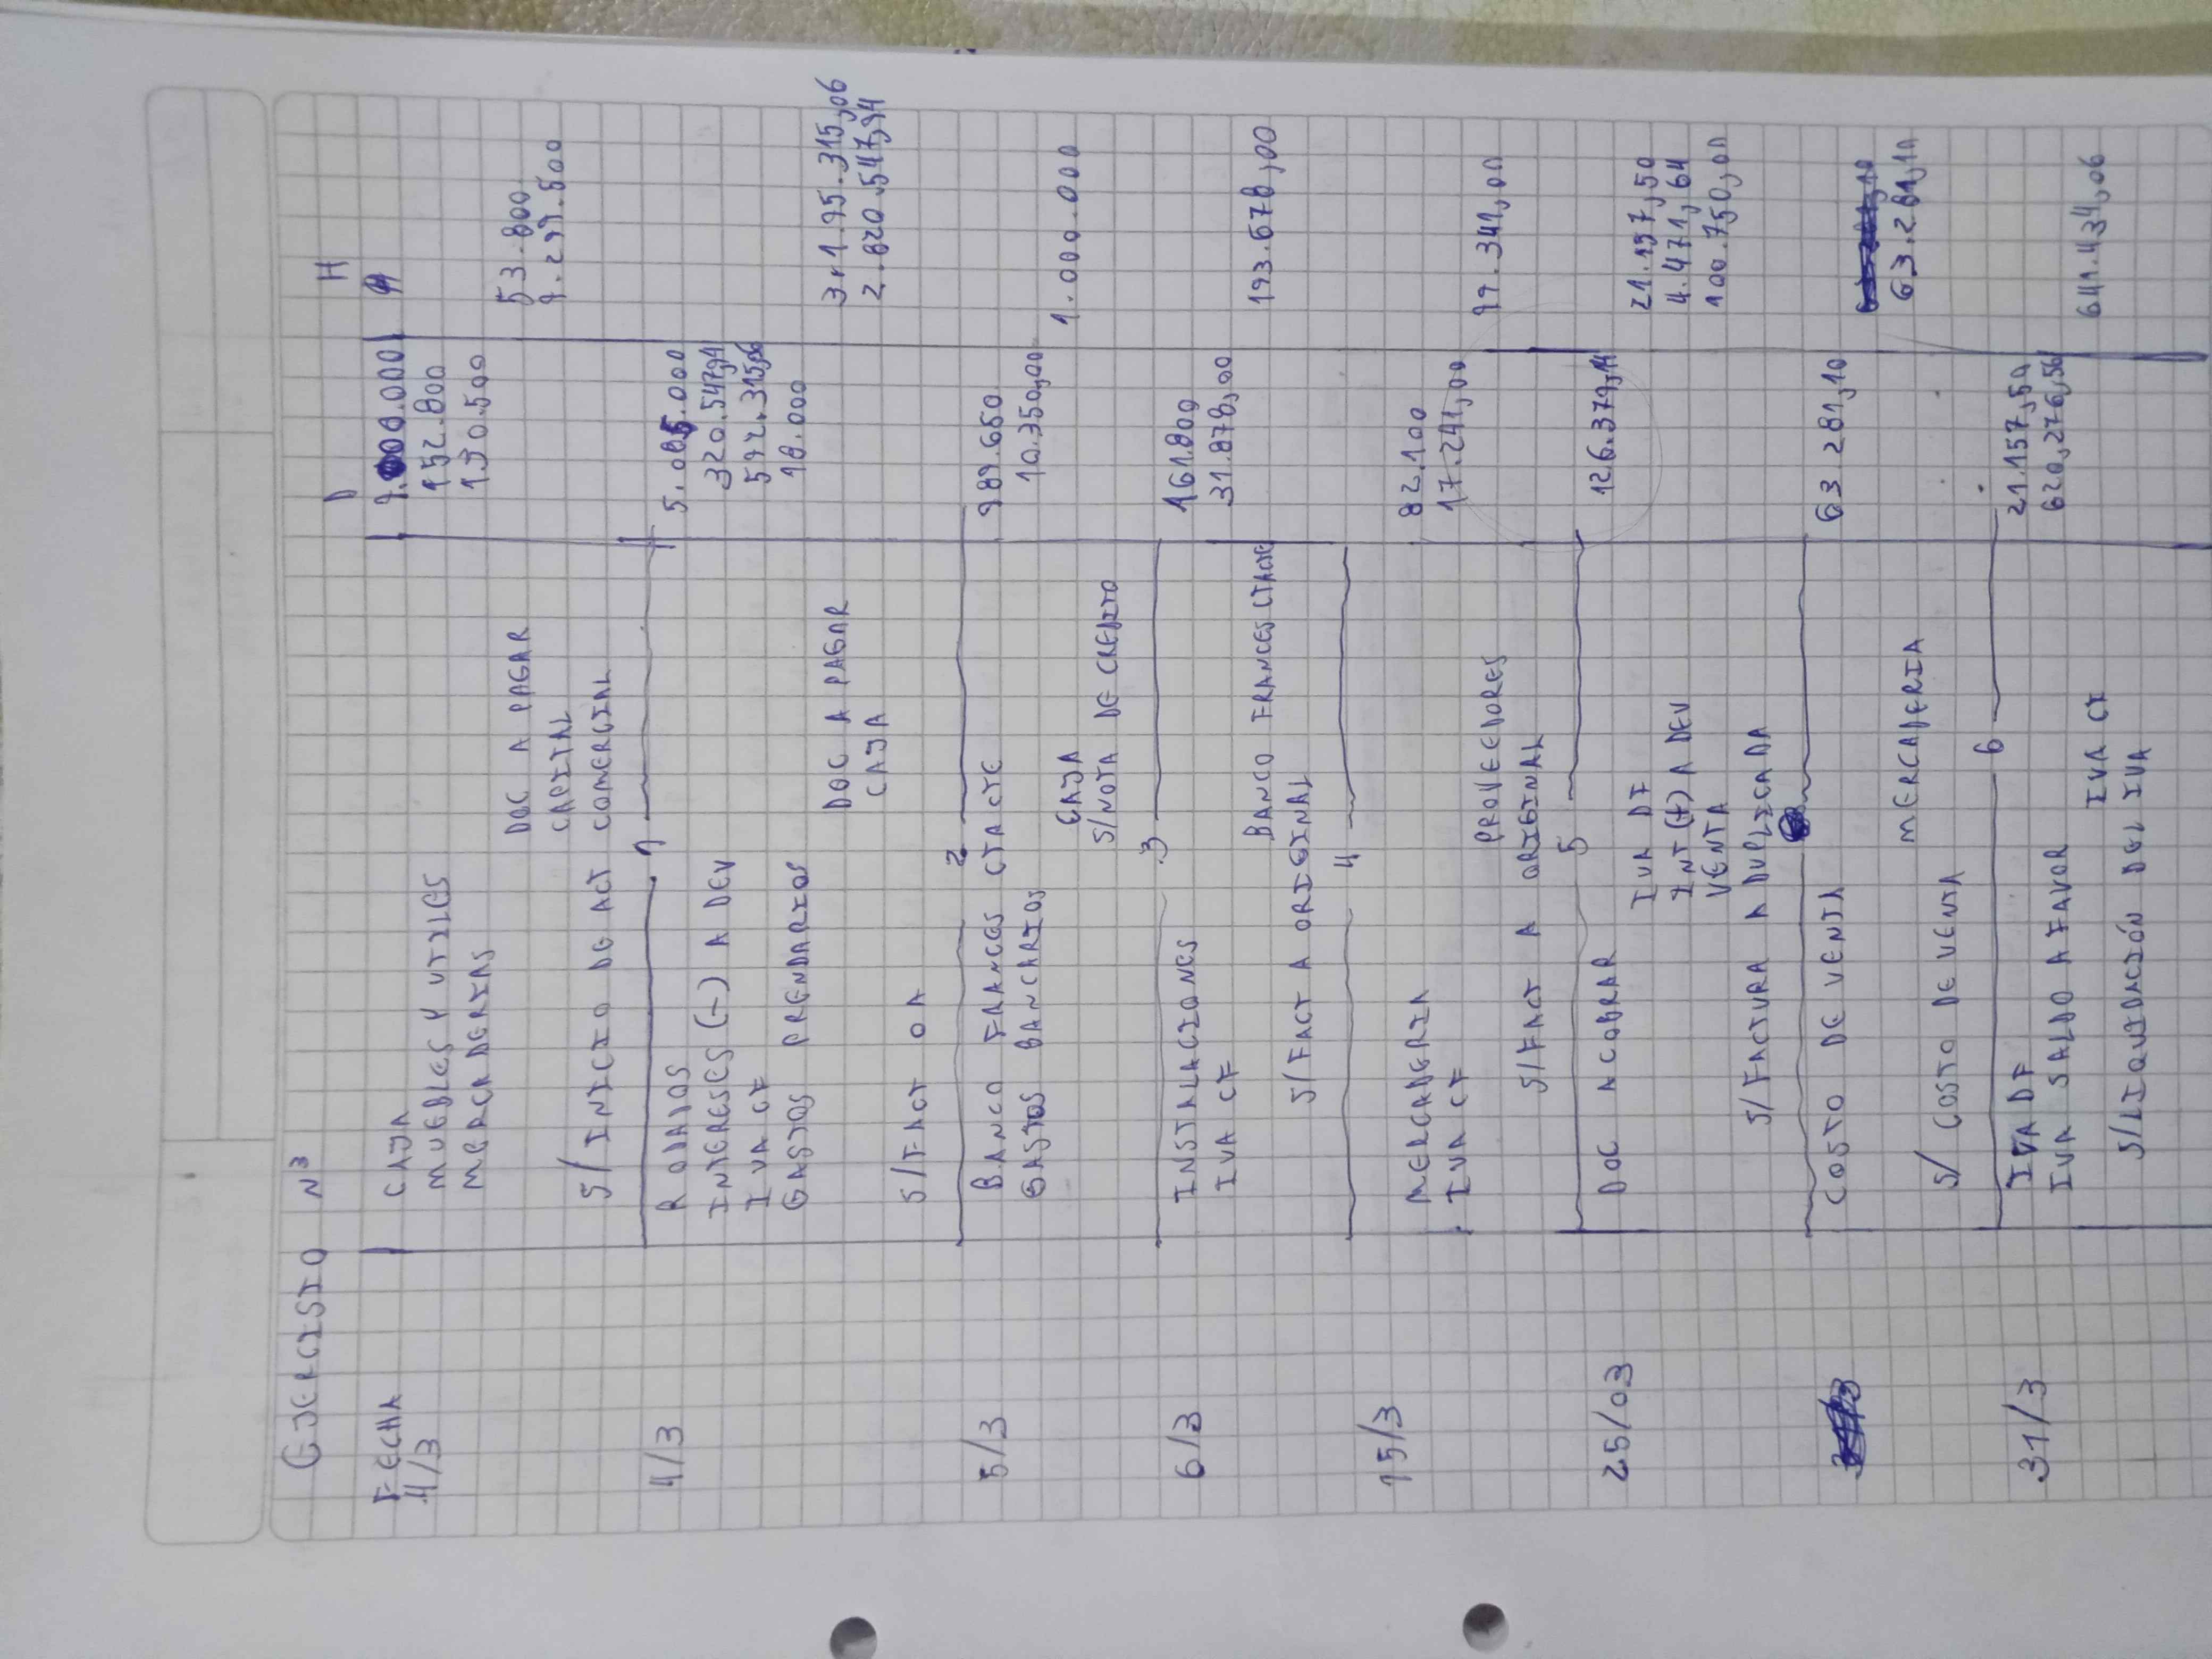 EJERCISIO N3
FECHA D H
4/3 CAJA 9.000.000
MUEBLES Y UTILES 152.800
MERCADERIAS 130.500
DOC A PAGAR 53.800
CAPITAL 9.299.500
S/INICIO DE ACT COMERCIAL
1
4/3 RODADOS 5.085.000
INTERESES (-) A DEV 320.547,94
IVA CF 592.315,06
GASTOS PRENDARIOS 18.000
DOC A PAGAR 3.195.315,06
CAJA 2.820.547,94
S/FACT OA
2
5/3 BANCO FRANCES CTA CTE 989.650
GASTOS BANCARIOS 10.350,00
CAJA 1.000.000
S/NOTA DE CREDITO
3
6/3 INSTALACIONES 161.800
IVA CF 31.878,00
BANCO FRANCES CTACTE 193.678,00
S/FACT A ORIGINAL
4
15/3 MERCADERIA 82.100
IVA CF 17.241,00
PROVEEDORES 99.341,00
S/FACT A ORIGINAL
5
25/03 DOC A COBRAR 126.379,14
IVA DF 21.157,50
INT (+) A DEV 4.471,64
VENTA 100.750,00
S/FACTURA A DUPLICADA
COSTO DE VENTA 63.281,10
MERCADERIA 63.281,10
S/ COSTO DE VENTA
6
31/3 IVA DF 21.157,50
IVA SALDO A FAVOR 620,276,56
IVA CF 641.434,06
S/LIQUIDACIÓN DEL IVA